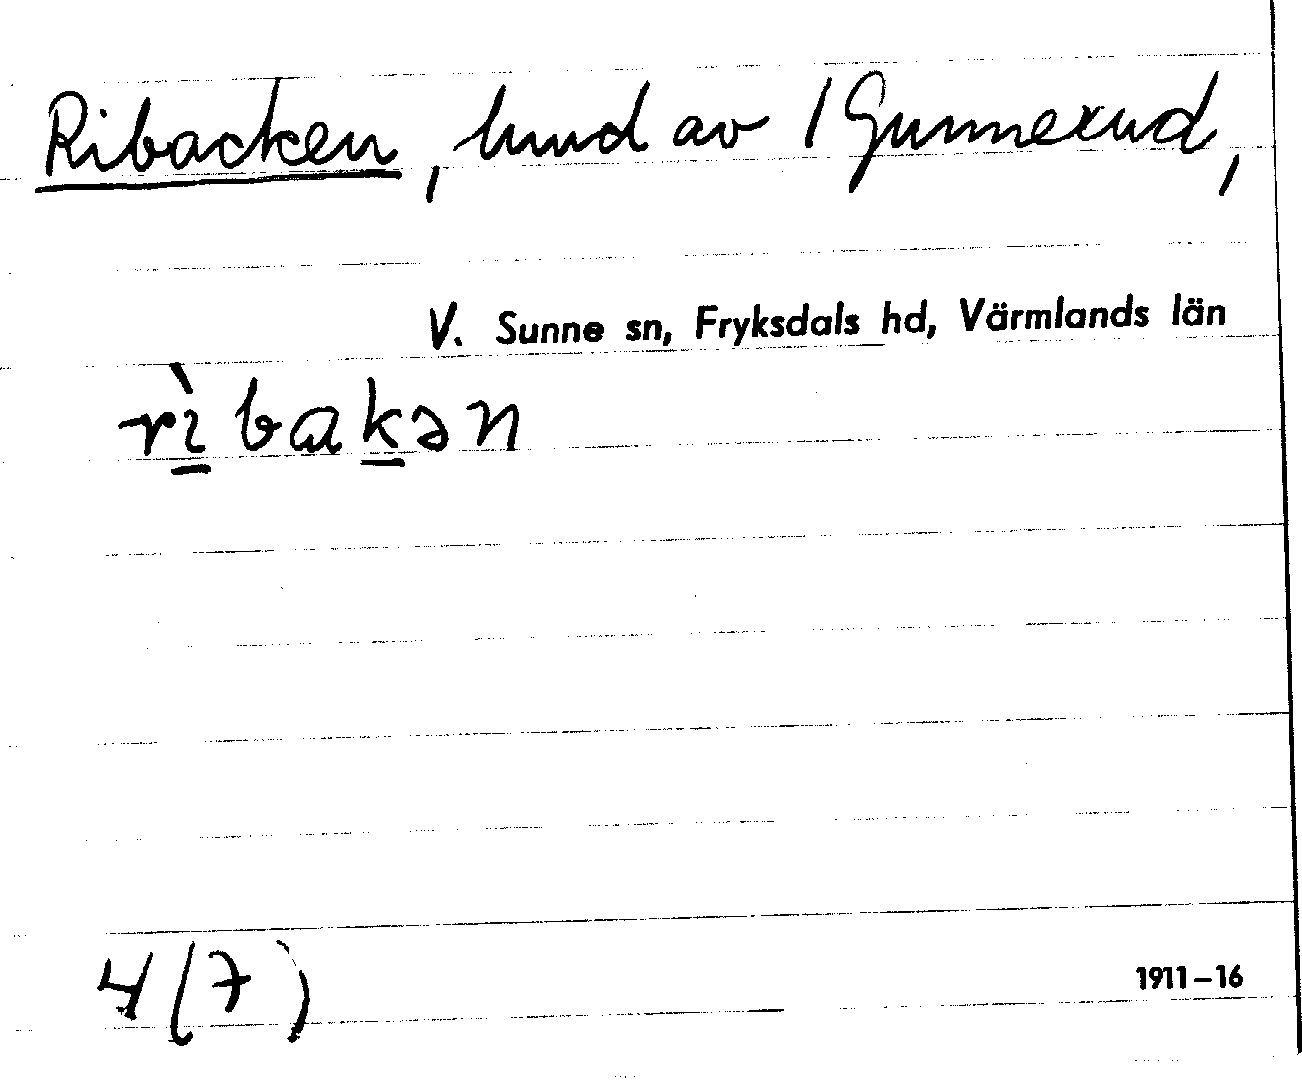 Ribacken, lund av 1 Gunnerud,
V. Sunne sn, Fryksdals hd, Värmlands län
rìbakən
4 (7)
1911–16